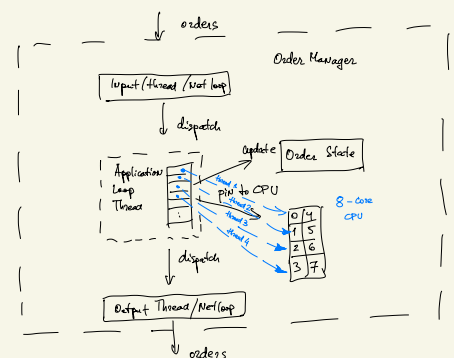 orders
Order Manager
Input/thread/Net loop
dispatch
update
Order State
Application
Loop
Thread
pin to CPU
thread 1
thread 2
thread 3
thread 4
8-core
CPU
0 4
1 5
2 6
3 7
dispatch
Output Thread/Netloop
orders